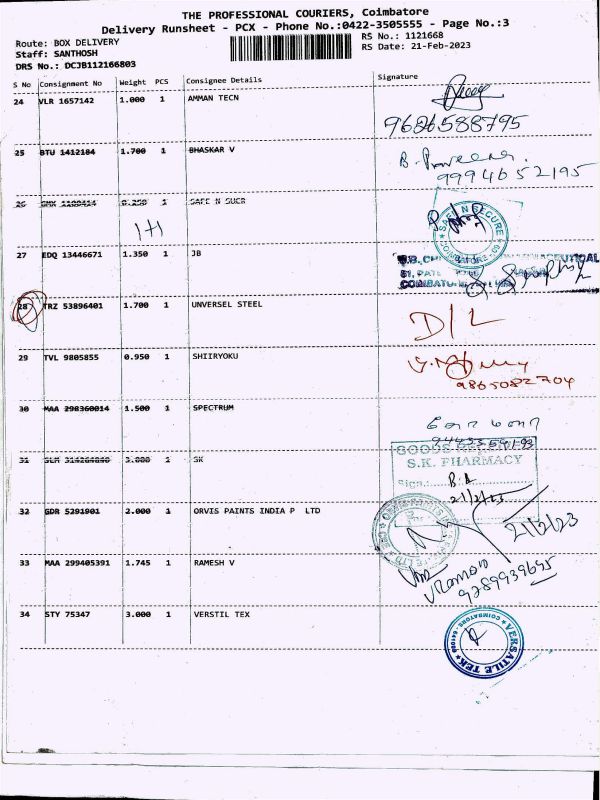 THE PROFESSIONAL COURIERS, Coimbatore
Delivery Runsheet - PCX - Phone No.:0422-3505555 - Page No.:3
Route: BOX DELIVERY
RS No.: 1121668
Staff: SANTHOSH
RS Date: 21-Feb-2023
DRS No.: DCJB112166803
S No Consignment No Weight PCS Consignee Details Signature
24 VLR 1657142 1.000 1 AMMAN TECN
9626588795
25 BTU 1412184 1.700 1 BHASKAR V
9994652195
26 0.250 1 SAFE N SUCR
SAFE N SECURE
27 EDQ 13446671 1.350 1 JB
28 TRZ 53896401 1.700 1 UNVERSEL STEEL
D/L
29 TVL 9805855 0.950 1 SHIIRYOKU
9865082704
30 MAA 298360014 1.500 1 SPECTRUM
31 3.000 1 SK
S.K. PHARMACY
Sign.:
21/2/23
32 GDR 5291901 2.000 1 ORVIS PAINTS INDIA P LTD
21/2/23
33 MAA 299405391 1.745 1 RAMESH V
9789939695
34 STY 75347 3.000 1 VERSTIL TEX
VERSATILE TEK